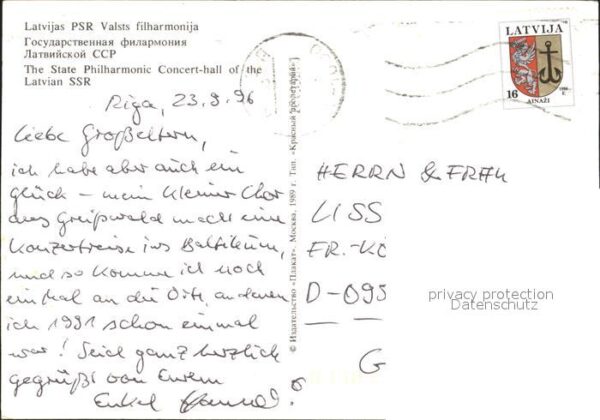 Latvijas PSR Valsts filharmonija
Государственная филармония
Латвийской ССР
The State Philharmonic Concert-hall of the
Latvian SSR
LATVIJA
16
1996
AINAŽI
Riga, 23.9.96
Liebe Großeltern,
ich habe aber auch ein
Glück – mein kleiner Chor
aus Greifswald macht eine
Konzertreise ins Baltikum,
und so komme ich noch
einmal an die Orte, an denen
ich 1991 schon einmal
war! Seid ganz herzlich
gegrüßt von Eurem
Enkel
© Издательство «Плакат». Москва. 1989 г. Тип. «Красный пролетарий»
HERRN & FRAU
LISS
FR.-KÖ
D-095
G
privacy protection
Datenschutz